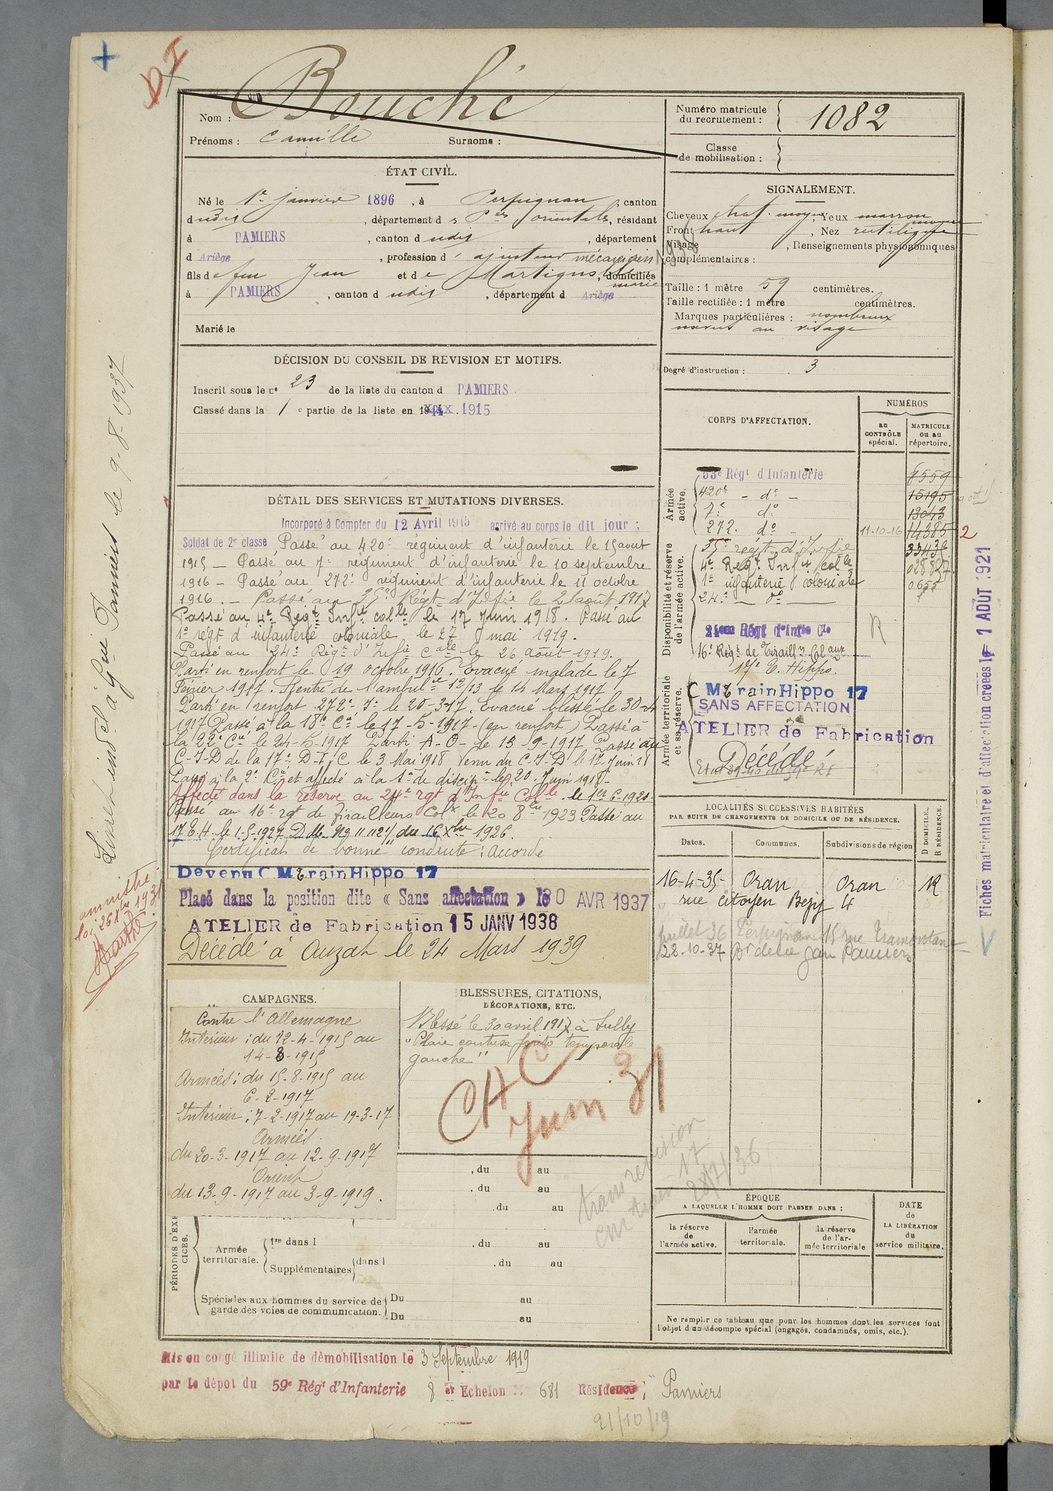 Bouché
Nom :
Prénoms : Camille Surnoms :
Numéro matricule
du recrutement : 1082
Classe
de mobilisation :
ÉTAT CIVIL.
Né le 1er janvier 1896, à Perpignan, canton
dudit, département des Pées orientales, résidant
à PAMIERS, canton dudit, département
d Ariège, profession d'ajusteur mécanicien
fils de feu Jean et de Martignols Marie, domiciliés
à PAMIERS, canton dudit, département d Ariège
Marié le
SIGNALEMENT.
Cheveux chat. moyen Yeux marron moyen
Front haut, Nez rectiligne
Visage, Renseignements physionomiques
complémentaires :
Taille : 1 mètre 59 centimètres.
Taille rectifiée : 1 mètre centimètres.
Marques particulières : nombreux
naevus au visage
Degré d'instruction : 3
DÉCISION DU CONSEIL DE REVISION ET MOTIFS.
Inscrit sous le no 23 de la liste du canton d PAMIERS.
Classé dans la 1e partie de la liste en 1915
CORPS D'AFFECTATION.
NUMÉROS
au
CONTRÔLE
spécial.
MATRICULE
ou au
répertoire.
Armée
active.
59e Régt d'Infanterie 8559
420e - do - 15195
7e do 13043
272. do 11-10-16 14385 2
Disponibilité et réserve
de l'armée active.
35e régt d'Infie
4e Régt Infie colle
1er infanterie coloniale
24e — do
24eme Régt d'Infie Cle
16e Rég. de Tiraillrs Colaux
17e E. Hippo.
Armée territoriale
et sa réserve.
C Mt rain Hippo 17
SANS AFFECTATION
ATELIER de Fabrication
Décédé
DÉTAIL DES SERVICES ET MUTATIONS DIVERSES.
Incorporé à Compter du 12 Avril 1915 arrivé au corps le dit jour ;
Soldat de 2e classe Passé au 420e régiment d'infanterie le 15 aout
1915 — Passé au 7e régiment d'infanterie le 10 septembre
1916 — Passé au 272e régiment d'infanterie le 11 octobre
1916. — Passé au 35e Régt d'Infie le 2 août 1917
Passé au 4e Régt Infie colle le 17 Juin 1918. Passé au
1er régt d'infanterie coloniale le 27 mai 1919.
Passé au 24e Régt d'Infie Cale le 26 août 1919.
Parti en renfort le 19 octobre 1916. Evacué malade le 7
Février 1917. Rentré de l'ambulce 12/13 le 14 Mars 1917
Parti en renfort 272e I. le 20-3-17. Evacué blessé le 30-4
1917 Passé à la 18e Cie le 17-5-1917 (en renfort) Passé à
la 22e Cie le 24-5-1917 Parti A-O- le 13-9-1917 Passé au
C-I-D de la 17e D-I-C le 3 Mai 1918 Venu du C-I-D le 17 Juin 18
Passé à la 2e Cie et affecté à la 1e de discipe le 20 Juin 1918
Affecté dans la réserve au 24e rgt d'Infie Colle le 1er 6-1921.
Passé au 16e rgt de Tirailleurs Col. le 20 8bre 1923 Passé au
17 E.H. le 1-5-1927 D.M. No 11112 1/1 du 16 Xbre 1926.
Certificat de bonne conduite : Accordé
Devenu C Mt rain Hippo 17
Placé dans la position dite « Sans affectation » le 30 AVR 1937
ATELIER de Fabrication 15 JANV 1938
Décédé à Auzat le 24 Mars 1939
LOCALITÉS SUCCESSIVES HABITÉES
PAR SUITE DE CHANGEMENTS DE DOMICILE OU DE RÉSIDENCE.
Dates. Communes. Subdivisions de région D DOMICILE. R RÉSIDENCE.
16-4-35- Oran Oran R
rue citoyen Bézy 4
juillet 36 Perpignan 15 rue Tramontane
28-10-37 Pamiers
CAMPAGNES.
Contre l'Allemagne
Intérieur : du 12-4-1915 au
14-8-1915
Armées : du 15-8-1915 au
6-2-1917
Intérieur : 7-2-1917 au 19-3-17
Armées
du 20-3-1917 au 12-9-1917
Orient
du 13-9-1917 au 3-9-1919.
BLESSURES, CITATIONS,
DÉCORATIONS, ETC.
Blessé le 30 avril 1917 à Sully
"Plaie contuse fronto temporale
gauche"
CAC
Juin 31
, du au
, du au
, du au
, du au
, du au
PÉRIODES D'EXERCICES.
Armée
territoriale.
1re dans l
Supplémentaires dans l
Spéciales aux hommes du service de
garde des voies de communication.
Du au
Du au
28/7/36
ÉPOQUE
A LAQUELLE L'HOMME DOIT PASSER DANS :
la réserve
de l'armée active.
l'armée
territoriale.
la réserve
de l'ar-
mée territoriale.
DATE
de
LA LIBÉRATION
du
service militaire.
Ne remplir ce tableau que pour les hommes dont les services font
l'objet d'un décompte spécial (engagés, condamnés, omis, etc.).
Mis en congé illimité de démobilisation le 3 Septembre 1919
par le dépôt du 59e Régt d'Infanterie 8e Echelon No 681 Résidence : Pamiers
21/10/19
amnistié
loi 26 1931
Fiches matriculaire et d'affectation créées le 1 AOUT 1921